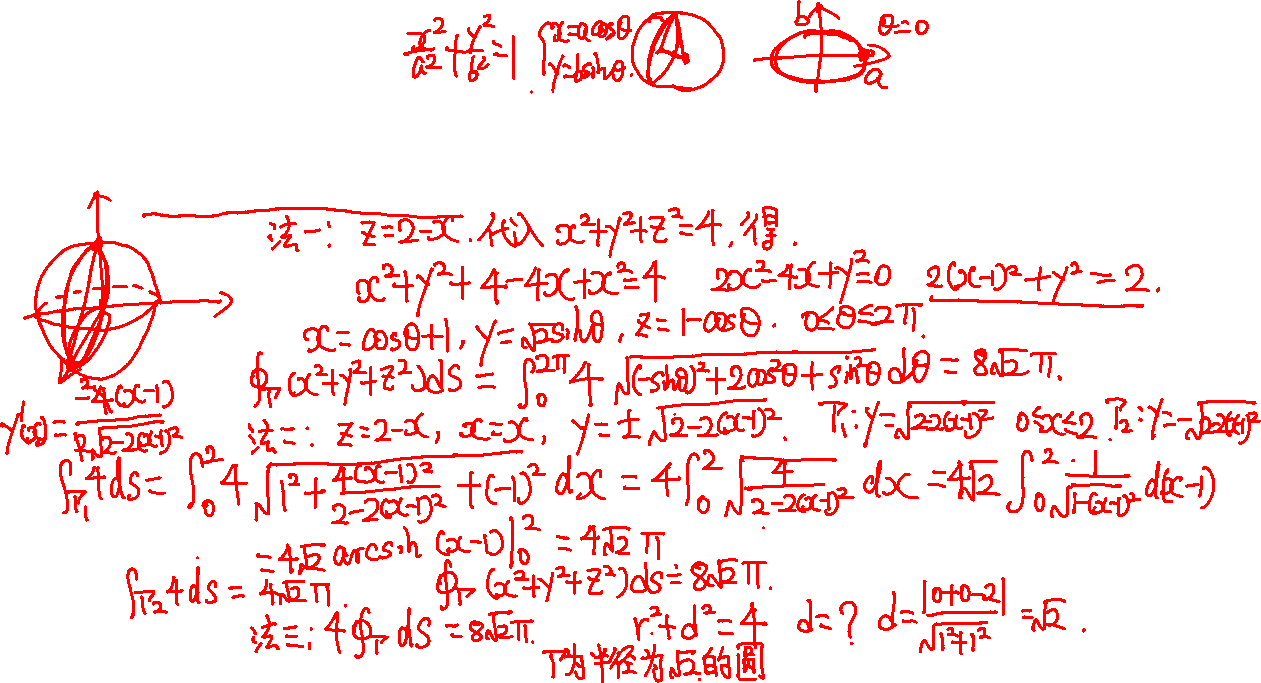 x²/a²+y²/b²=1 {x=acosθ y=bsinθ. b θ=0 a
法一: z=2-x.代入 x²+y²+z²=4,得.
x²+y²+4-4x+x²=4 2x²-4x+y²=0 2(x-1)²+y²=2.
x=cosθ+1, y=√2sinθ, z=1-cosθ. 0≤θ≤2π.
∮Γ(x²+y²+z²)ds=∫₀^{2π}4√((-sinθ)²+2cos²θ+sin²θ)dθ=8√2π.
y'(x)=-4(x-1)/(2√(2-2(x-1)²))
法二: z=2-x, x=x, y=±√(2-2(x-1)²). Γ₁:y=√(2-2(x-1)²) 0≤x≤2 Γ₂:y=-√(2-2(x-1)²)
∫Γ₁4ds=∫₀²4√(1²+4(x-1)²/(2-2(x-1)²)+(-1)²)dx=4∫₀²√(4/(2-2(x-1)²))dx=4√2∫₀²1/√(1-(x-1)²)d(x-1)
=4√2arcsin(x-1)|₀²=4√2π
∫Γ₂4ds=4√2π. ∮Γ(x²+y²+z²)ds=8√2π.
法三: 4∮Γds=8√2π. r²+d²=4 d=? d=|0+0-2|/√(1²+1²)=√2.
Γ为半径为√2的圆